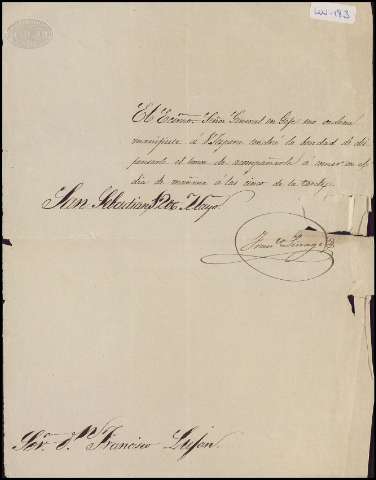 LUJ-193
El Ecsmo. Señor General en Gefe me ordena
manifieste á V. espera tendrá la bondad de dis
pensarle el honor de acompañarle á comer en el
dia de mañana á las cinco de la tarde.
San Sebastian 26 Mayo.
Franco. Linage
Sor. Dn. Francisco Lujan.